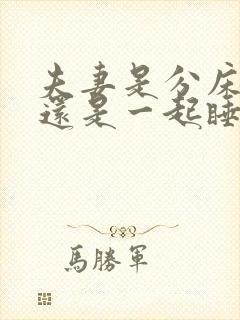 夫妻是分床
還是一起睡
馬勝軍